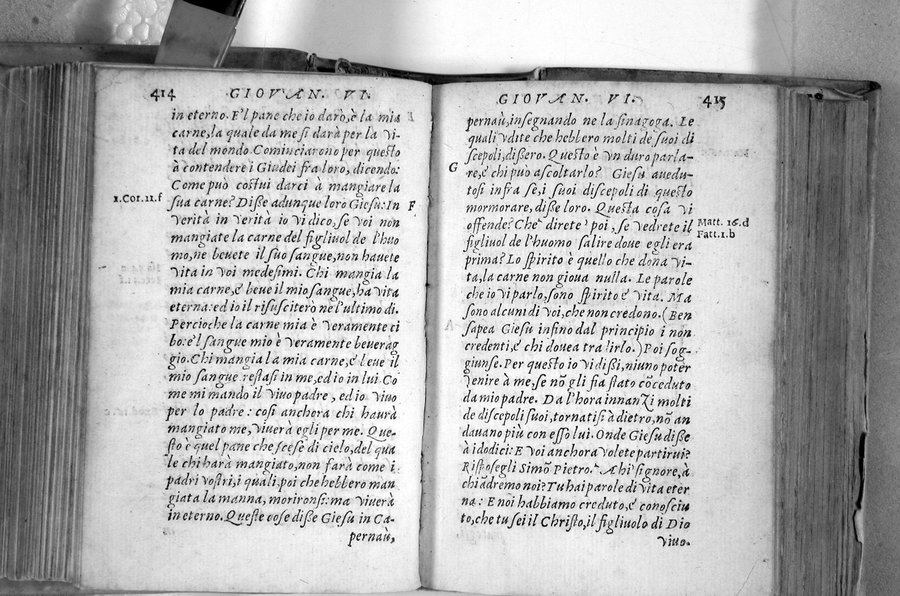 414 GIOVAN. VI.
in eterno. E'l pane che io darò, è la mia
carne, la quale da me si darà per la vi-
ta del mondo. Cominciarono per questo
à contendere i Giudei fra loro, dicendo:
Come può costui darci à mangiare la
1.Cor.11.f
sua carne? Disse adunque loro Giesu: In
F
verità in verità io vi dico, se voi non
mangiate la carne del figliuol de l'huo
mo, ne beuete il suo sangue, non hauete
vita in voi medesimi. Chi mangia la
mia carne, e beue il mio sangue, ha vita
eterna: ed io il risusciterò ne l'ultimo dì.
Percioche la carne mia è veramente ci
bo: e'l sangue mio è veramente beuerag
gio. Chi mangia la mia carne, e beue il
mio sangue restasi in me, ed io in lui. Co
me mi mando il viuo padre, ed io viuo
per lo padre: così anchora chi haurà
mangiato me, viuerà egli per me. Que-
sto è quel pane che scese di cielo, del qua
le chi harà mangiato, non farà come i
padri vostri, i quali poi che hebbero man
giata la manna, morironsi: ma viuerà
in eterno. Queste cose disse Giesu in Ca-
pernaù,
GIOVAN. VI. 415
pernaù, insegnando ne la sinagoga. Le
quali vdite che hebbero molti de suoi di
scepoli, dissero. Questo è vn duro parla-
G
re, e chi può ascoltarlo? Giesu auedu-
tosi infra se, i suoi discepoli di questo
mormorare, disse loro. Questa cosa vi
offende? Che direte poi, se vedrete il
Matt. 16.d
figliuol de l'huomo salire doue egli era
Fatt.1.b
prima? Lo spirito è quello che dona vi-
ta, la carne non gioua nulla. Le parole
che io vi parlo, sono spirito e vita. Ma
sono alcuni di voi, che non credono. (Ben
sapea Giesu infino dal principio i non
credenti, e chi douea tradirlo.) Poi sog-
giunse. Per questo io vi dissi, niuno poter
venire à me, se nō gli fia stato cōceduto
da mio padre. Da l'hora innanzi molti
de discepoli suoi, tornatisi à dietro, nō an
dauano più con esso lui. Onde Giesu disse
à i dodici: E voi anchora volete partirui?
Rispo segli Simō Pietro. Ahi signore, à
chi ādremo noi? Tu hai parole di vita eter
na: E noi habbiamo creduto, e conosciu
to, che tu sei il Christo, il figliuolo di Dio
viuo.